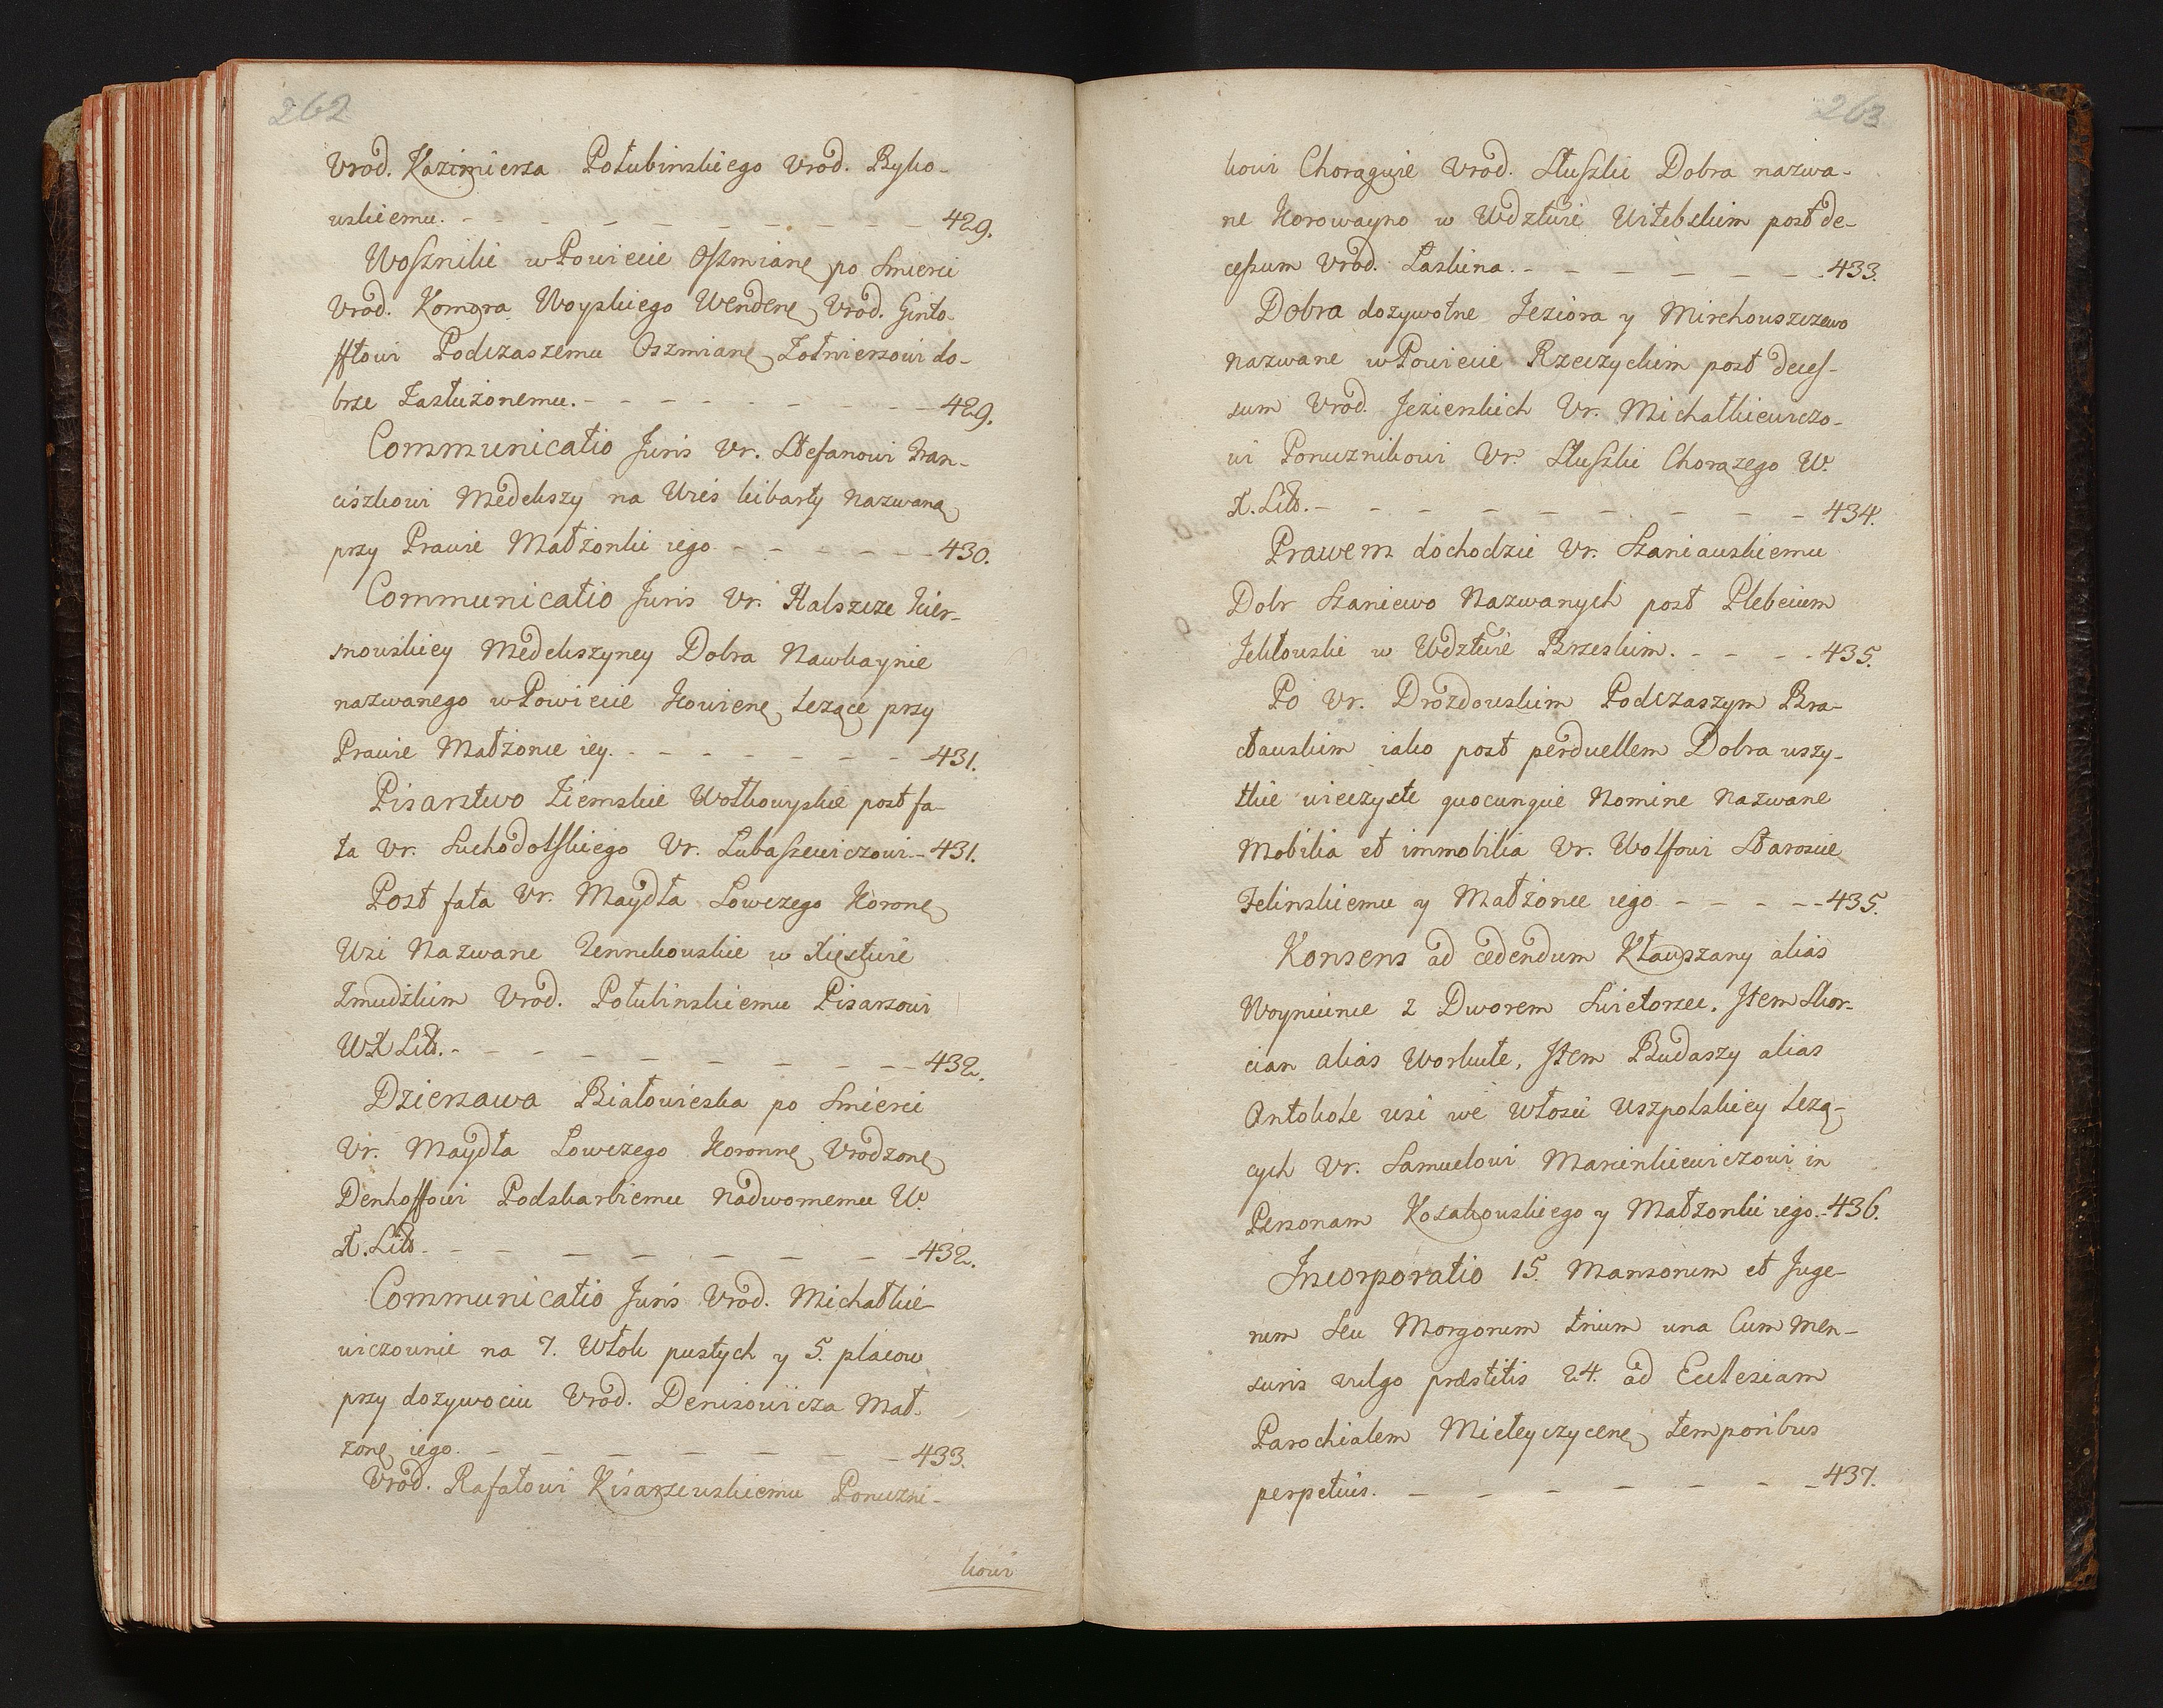 262
Vrod. Kazimierza Połubinskiego Vrod. Ryko-
wskiemu. - - - - - - - - 429.
Woſznilie w Powiecie Oſzmianę po Smierci
Vrod. Komora Woyskiego Wendenę Vrod. Ginto-
fftowi Podczaszemu Oszmianę Zołnierzowi do-
brze Zasłużonemu. - - - - - - - - - 429.
Communicatio Juris Vr. Stefanowi Fran-
ciszkowi Medekszy na Wieś kibarty Nazwaną
przy Prawie Małżonki iego - - - - - - 430.
Communicatio Juris Vr. Halszcze Kier-
snowskiey Medekszyney Dobra Nawkaynie
nazwanego w Powiecie Kowienę leżące przy
Prawie Małżonce iey. - - - - - - - 431.
Pisarstwo Ziemskie Wołkowyskie post fa-
ta Vr. Suchodolſkiego Vr. Lubaſzewiczowi - 431.
Post fata Vr. Maydła Łowczego Koronę
Wsi Nazwane w Xięstwie
Zmudzkim Vrod. Połubinskiemu Pisarzowi
WX Litt. - - - - - - - - - 432.
Dzierzawa Białowieska po Smierci
Vr. Maydła Łowczego Koronnę Vrodzonę
Denhoffowi Podskarbiemu Nadwornemu W.
X. Litt - - - - - - - - 432.
Communicatio Juris Vrod. Michałkie-
wiczownie na 7. Włok pustych y 5. placow
przy dozywociu Vrod. Denisowicza Mał-
zonę iego. - - - - - - - 433.
Vrod. Rafałowi Kisarzewskiemu Porucżni-
kowi
263
kowi Choragwie Vrod. Słuſzki Dobra nazwa-
ne Korowayno w Wdztwie Witebskim post de-
ceſsum Vrod. Laskina. - - - - - - 433.
Dobra dozywotne Jeziora y Mirchowszczewo
nazwane w Powiecie Rzeczyckim post deceſ-
sum Vrod. Jezierskich Vr. Michałkiewiczo-
wi Porucznikowi Vr. Słuſzki Chorązego W.
X. Litt. - - - - - - - - - 434.
Prawem dochodzic Vr. Szaniawskiemu
Dobr Szaniewo Nazwanych post Plebeium
w Wdztwie Brzeskim. - - - - 435.
Po Vr. Drozdowskim Podczaszym Bra-
cławskim iako post perduellem Dobra wszy-
tkie wieczyste quocunque Nomine Nazwane
Mobilia et immobilia Vr. Wolfowi Staroscie
Felinskiemu y Małżonce iego - - - - - 435.
Konsens ad cedendum Kławszany alias
Woyniunce z Dworem Swietorzec. Item Skor-
cian alias Workute, Item Rudaszy alias
Antokole wsi we włosci Uszpolskiey leżą-
cych Vr. Samuelowi Marcinkiewiczowi in
Personam Kosakowskiego y Małzonki iego. - 436.
Incorporatio 15. Mansorum et Juge-
rum Seu Morgorum trium una Cum men-
suris vulgo præstitis 24. ad Ecclesiam
Parochialem Mieleyczycenę temporibus
perpetuis. - - - - - - - 437.